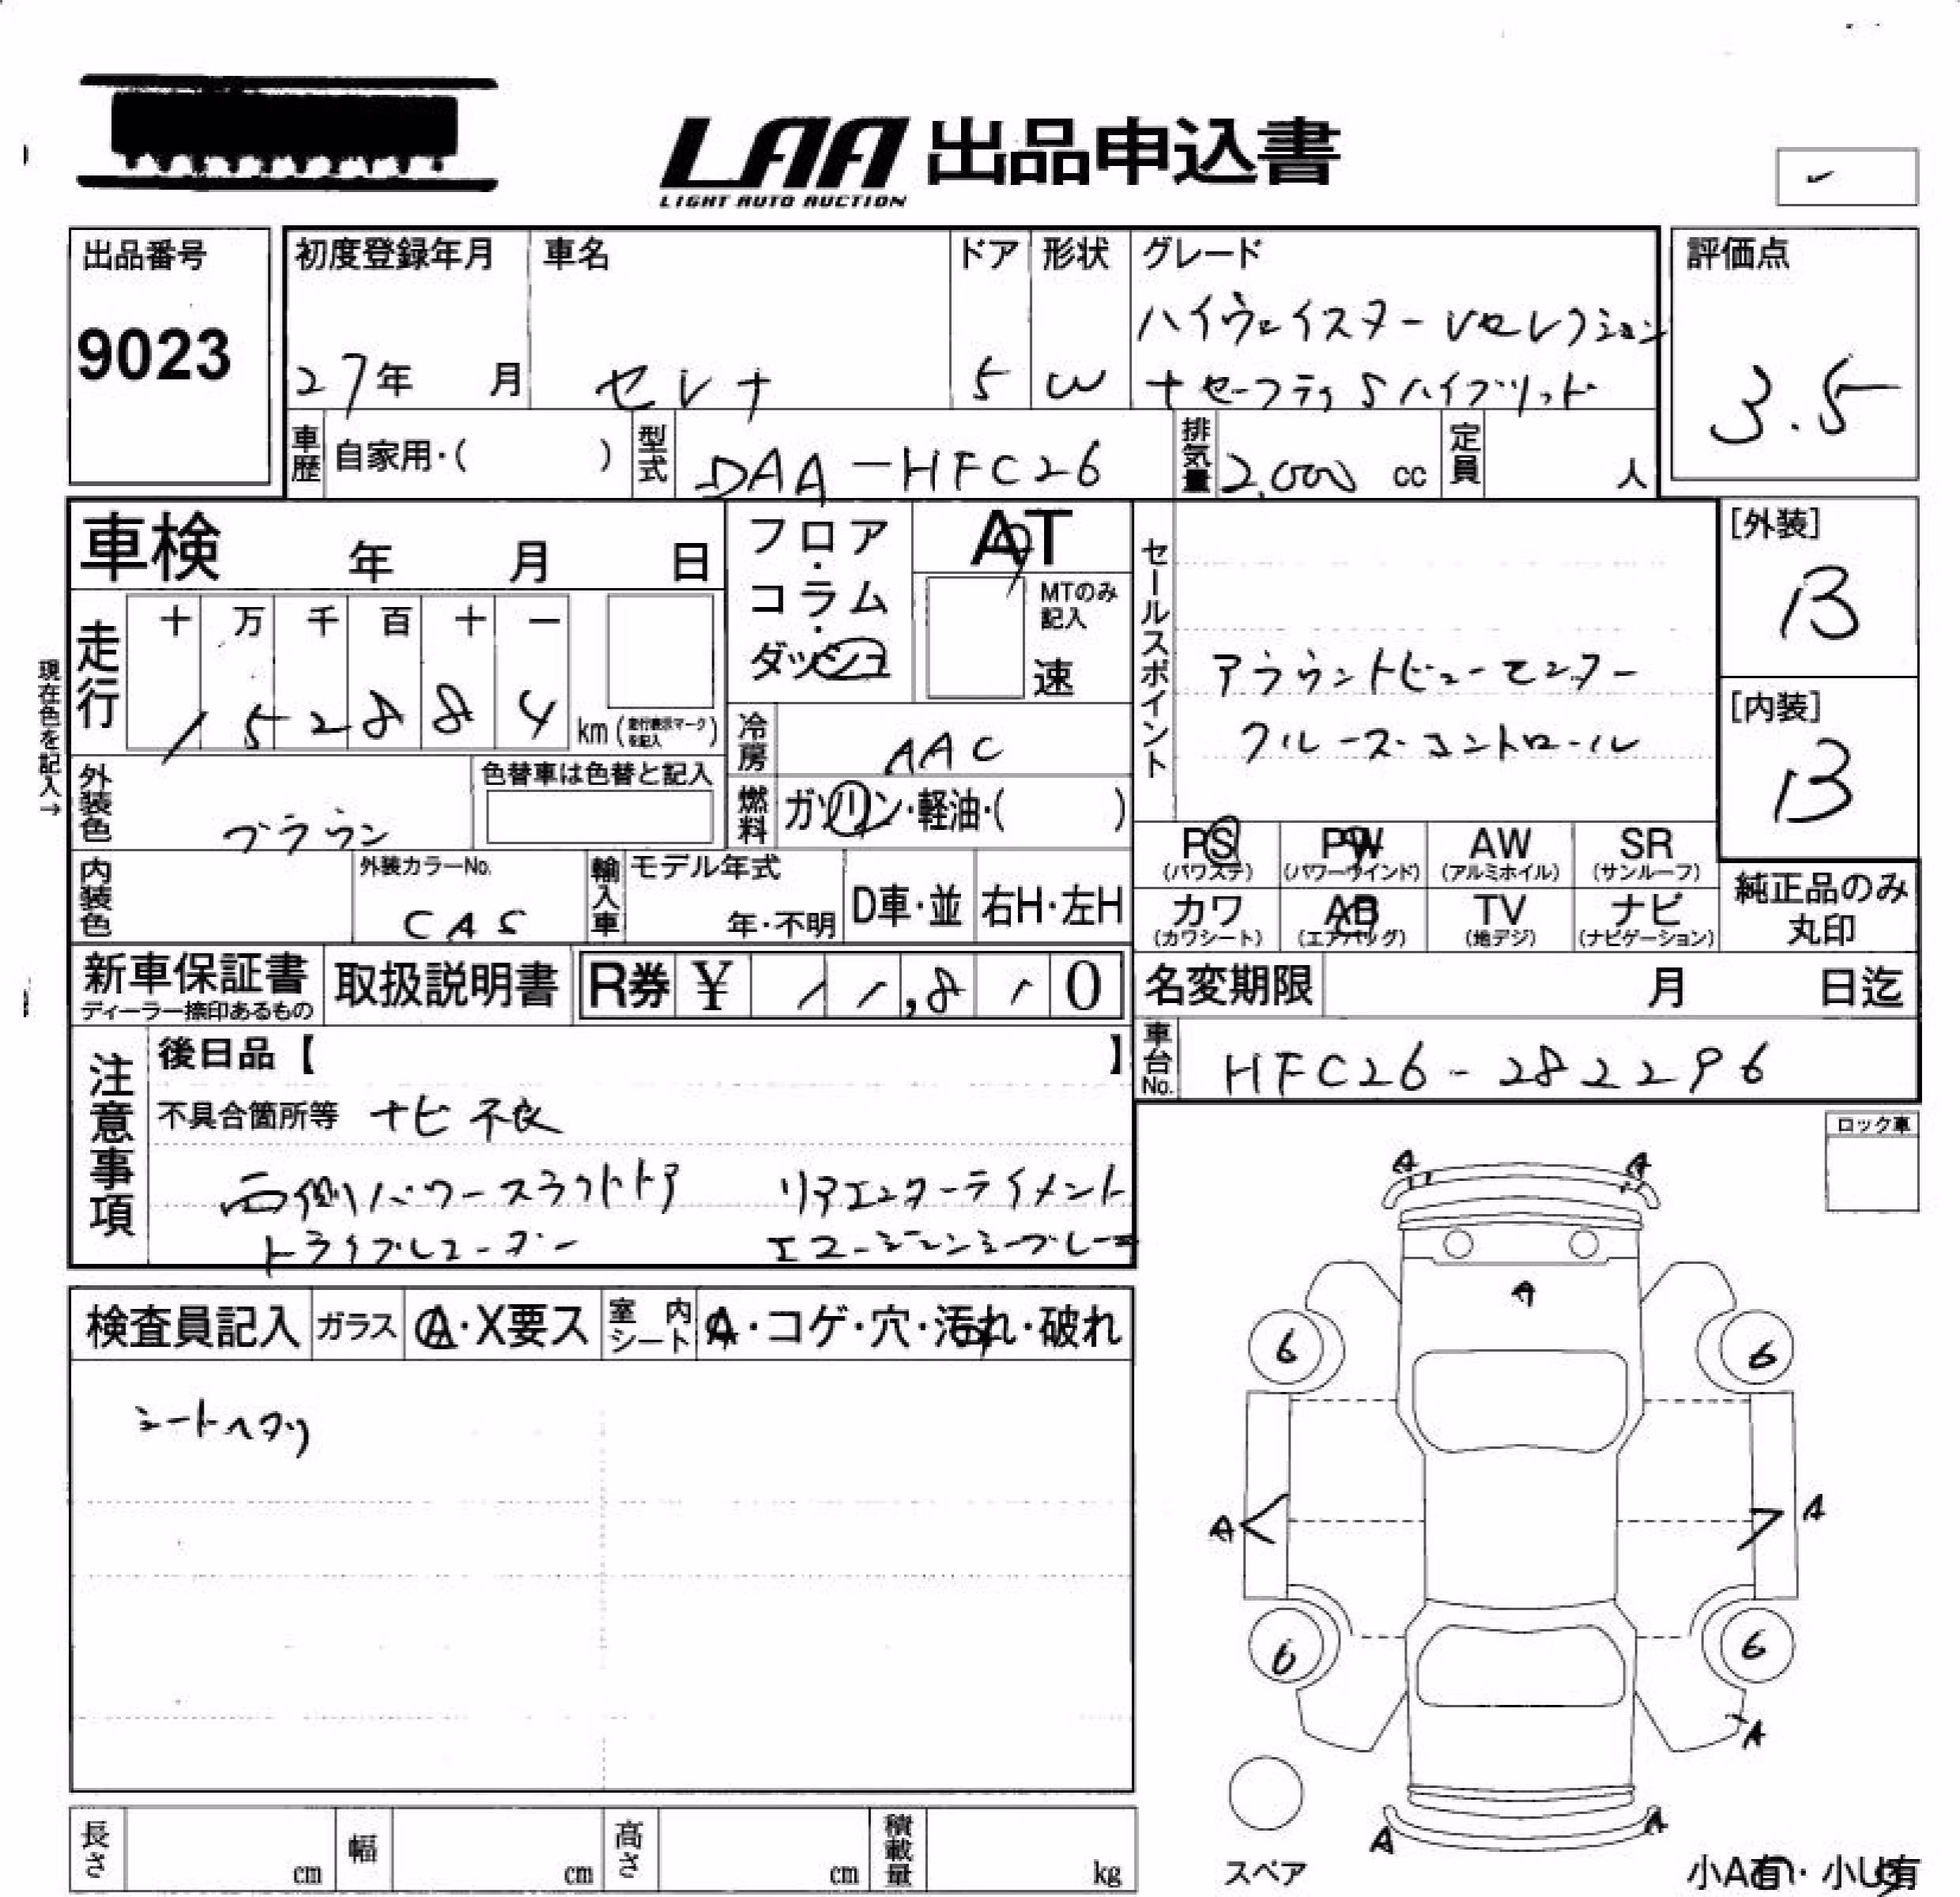 LAA 出品申込書
LIGHT AUTO AUCTION
出品番号
9023
初度登録年月
27年 月
車名
セレナ
ドア
5
形状
W
グレード
ハイウェイスターVセレクション
+セーフティSハイブリッド
評価点
3.5
車歴 自家用・( )
型式 DAA-HFC26
排気量 2,000 cc
定員 人
車検 年 月 日
フロア・コラム・ダッシュ
AT
MTのみ記入
速
セールスポイント
アラウンドビューモニター
クルーズコントロール
[外装]
B
[内装]
B
現在色を記入→
走行
十 万 千 百 十 一
1 5 2 8 8 4 km (走行表示マークを記入)
冷房 AAC
外装色 ブラウン
色替車は色替と記入
燃料 ガソリン・軽油・( )
PS (パワステ) PW (パワーウインド) AW (アルミホイル) SR (サンルーフ)
カワ (カワシート) AB (エアバッグ) TV (地デジ) ナビ (ナビゲーション)
純正品のみ丸印
内装色
外装カラーNo.
CAS
輸入車 モデル年式
年・不明
D車・並 右H・左H
新車保証書
ディーラー捺印あるもの
取扱説明書
R券 ¥ 11,810
名変期限 月 日迄
車台No. HFC26-282296
注意事項
後日品【 】
不具合箇所等 ナビ不良
右側パワースライドドア リアエンターテイメント
ドライブレコーダー エマージェンシーブレーキ
ロック車
検査員記入 ガラス A・X要ス 室内シート A・コゲ・穴・汚れ・破れ
シートヘタリ
A A
A
6 6
A A
6 6
A
A A
スペア
小A有・小U有
長さ cm 幅 cm 高さ cm 積載量 kg